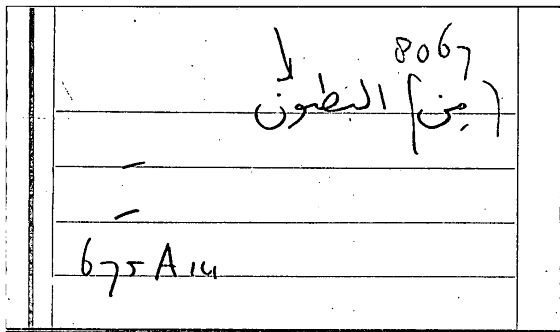 8067
(من) البنطلون
675 A 14